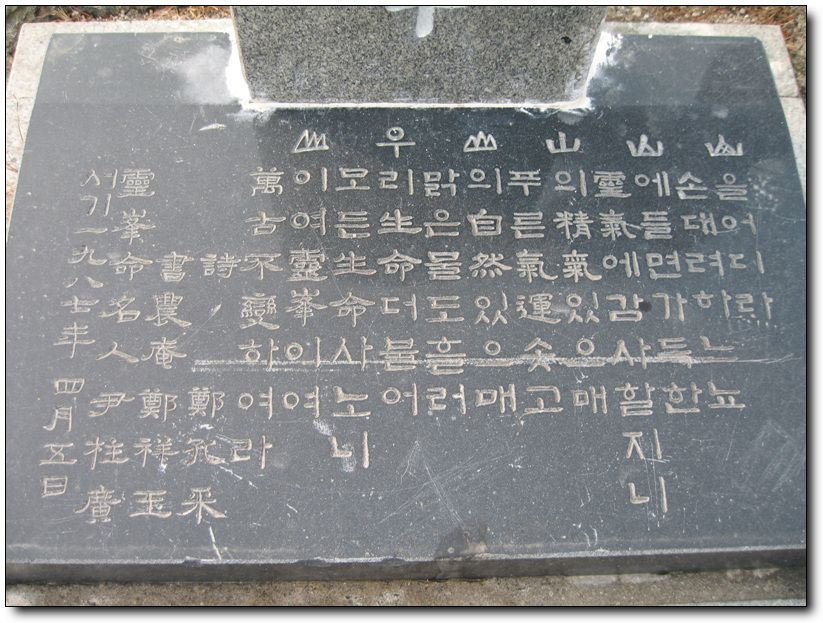 山을어디라
손대려하느뇨
山에들면가득한
靈氣에감사할지니
山의精氣있으매
푸른氣運솟고
山의自然있으매
맑은물도흘러
우리生命더불어
모든生命사노니
山이여靈峯이여
萬古不變하여라
詩 鄭孔采
書農庵 鄭祥玉
靈峯命名人 尹柱廣
서기一九八七年 四月五日